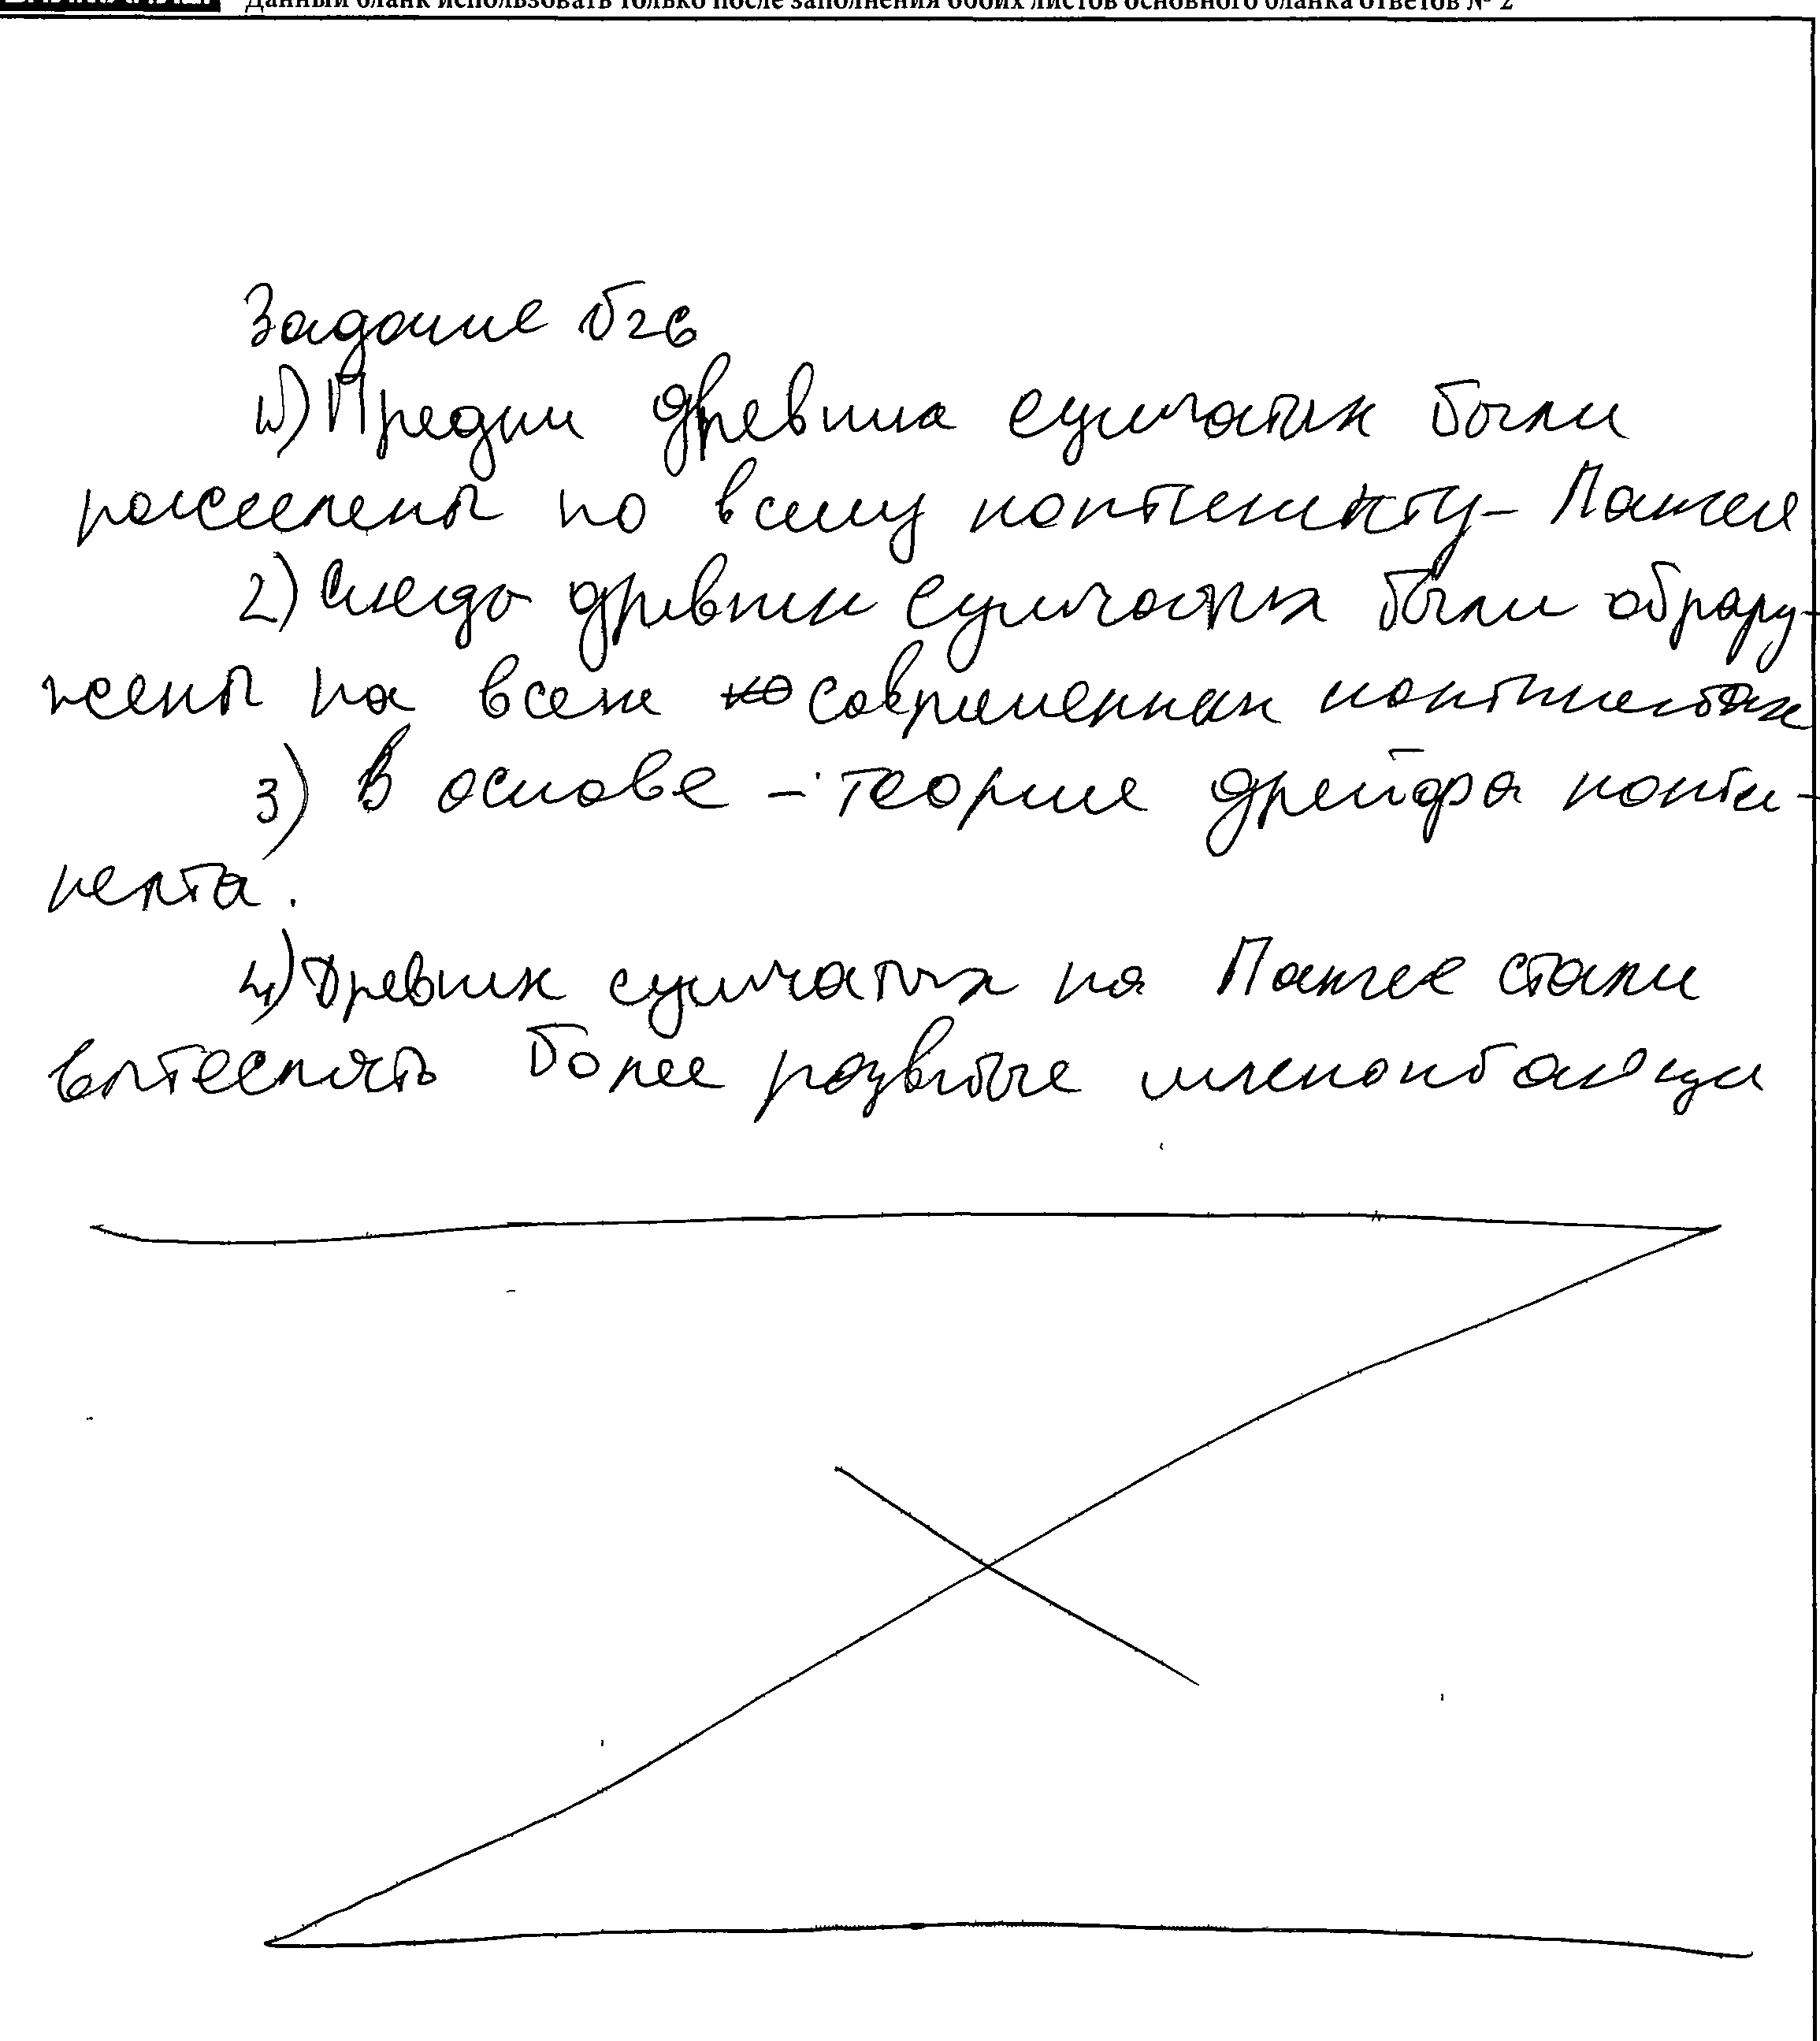 Данный бланк использовать только после заполнения обоих листов основного бланка ответов № 2
Задание 26
1) Предки древних сумчатых были
расселены по всему континенту - Пангея
2) Следы древних сумчатых были обнару-
жены на всех современных континентах
3) В основе - теория дрейфа конти-
нента.
4) Древних сумчатых на Пангее стали
вытеснять более развитые млекопитающи